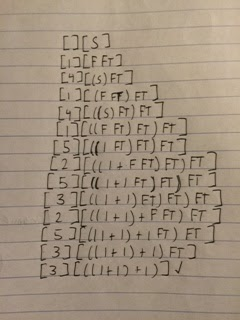 [][S]
[1][F FT]
[4][(S) FT]
[1][(F FT) FT]
[4][((S) FT) FT]
[1][((F FT) FT) FT]
[5][((1 FT) FT) FT]
[2][((1+F FT) FT) FT]
[5][((1+1 FT) FT) FT]
[3][((1+1) FT) FT]
[2][((1+1)+F FT) FT]
[5][((1+1)+1 FT) FT]
[3][((1+1)+1) FT]
[3][((1+1)+1)] ✓